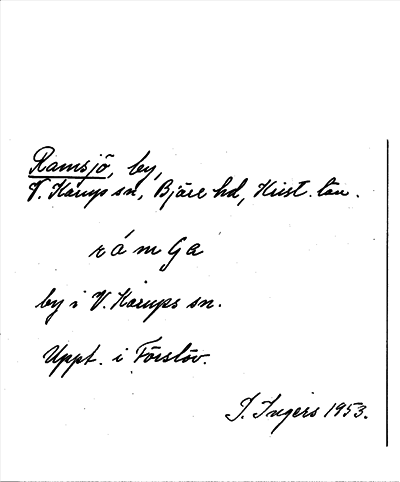 Ramsjö, by,
V. Karups sn, Bjäre hd, Krist. län.
rámGa
by i V. Karups sn.
Uppt. i Förslöv.
I. Ingers 1953.